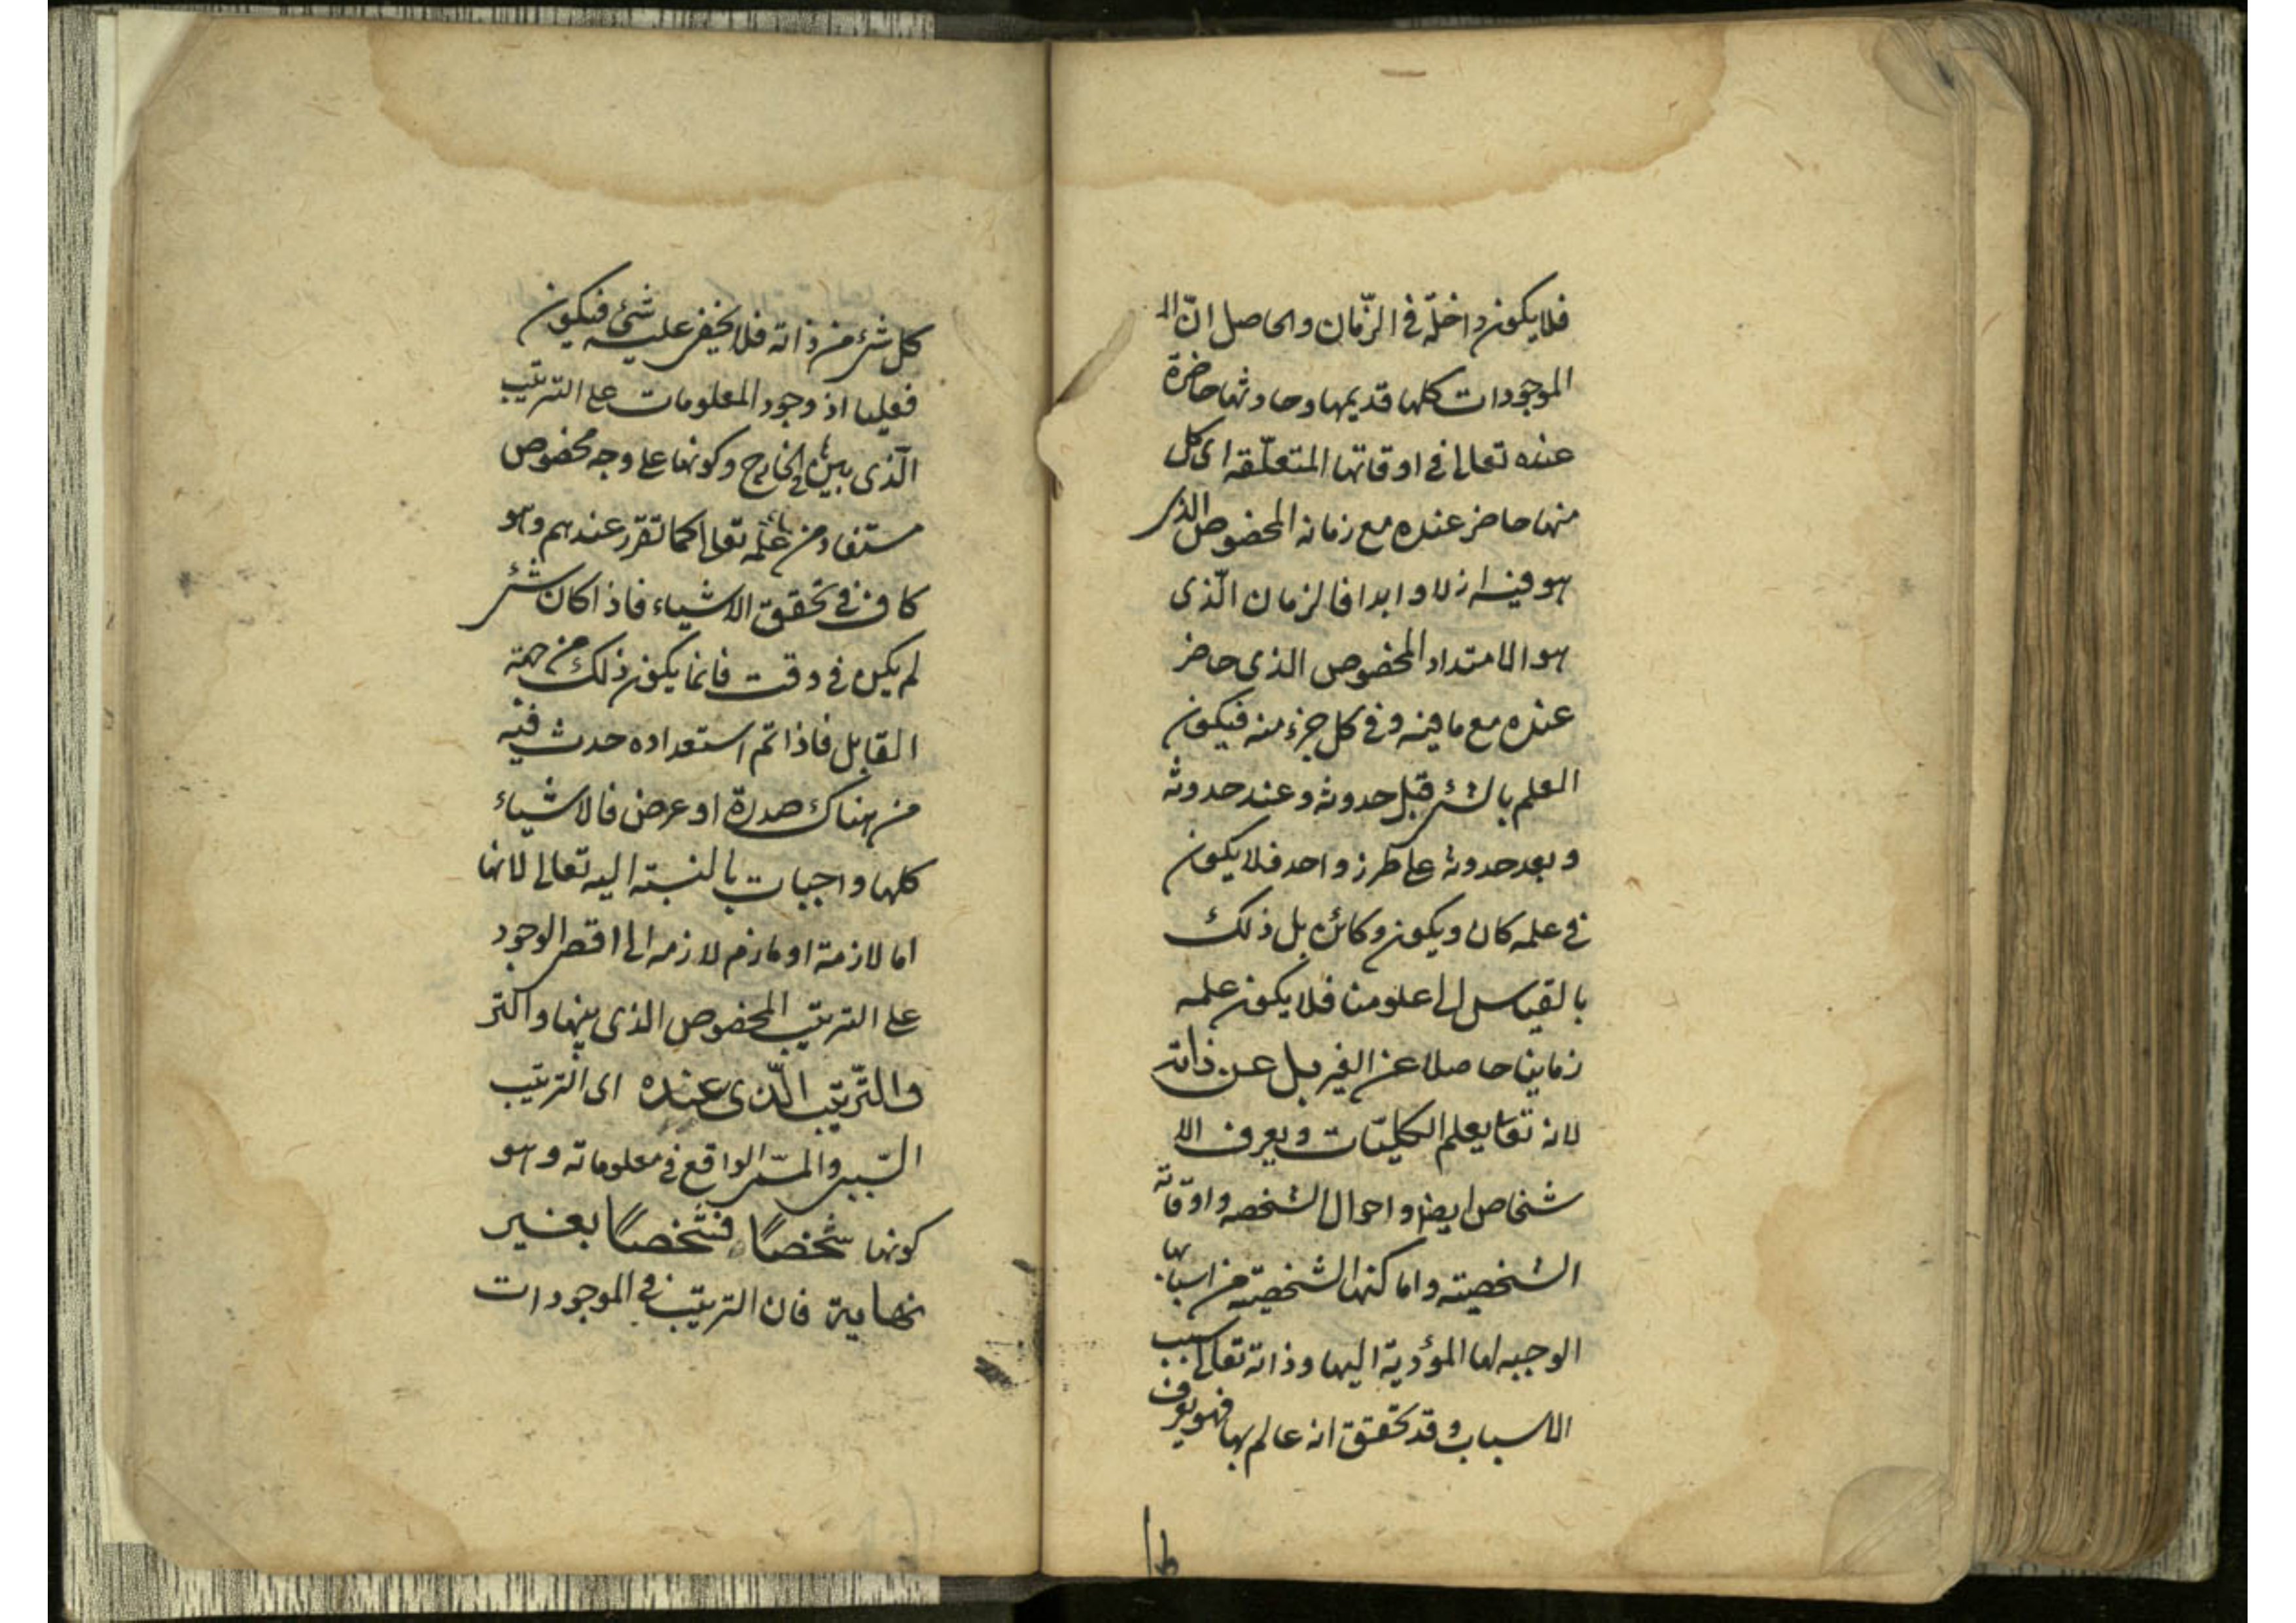 فلا يكون داخلة في الزّمان والحاصل انّ ال
الموجودات كلها قديمها وحادثها حاضرة
عنده تعالى في اوقاتها المتعلّقه اى كل
منها حاضر عنده مع زمانه المخصوص الذى
هو فيه ازلا وابدا فالزمان الّذى
هو الامتداد المخصوص الذى حاضر
عنده مع ما فيه وفى كل جزء منه فيكون
العلم بالشئ قبل حدوثه وعند حدوثه
وبعد حدوثه على طرز واحد فلا يكون
في علمه كان ويكون وكائن بل ذلك
بالقياس الى علومنا فلا يكون علمه
زمانيا حاصلا عن الغير بل عن ذاته
لانه تعا يعلم الكليّات ويعرف الا
شخاص ايضا واحوال الشخصه واوقاته
الشخصيته واماكنها الشخصيته من اسبابها
الوجبه لها المؤدية اليها وذاته تعالى سبب
الاسباب وقد تحقق انه عالم بها فهو يعرف
كل شئ من ذاته فلا يخفى عليه شئ فيكون
فعليا اذ وجود المعلومات على الترتيب
الّذى بينها في الخارج وكونها على وجه مخصوص
مستفاد من علمه تعالى كما تقرّر عندهم وهو
كاف في تحقق الاشياء فاذا كان شئ
لم يكن في وقت فانما يكون ذلك من جهة
القابل فاذا تم استعداده حدث فيه
من هناك صورة او عرض فالاشياء
كلها واجبات بالنسبته اليه تعالى لانها
اما لازمة او لازم لازمه الى اقصى الوجود
على الترتيب المخصوص الذى بينها واكثر
والتّرتيب الّذى عنده اى الترتيب
السّببى والمسّببى الواقع في معلوماته وهو
كونها شخصًا فشخصًا بغير
نهاية فان الترتيب في الموجودات